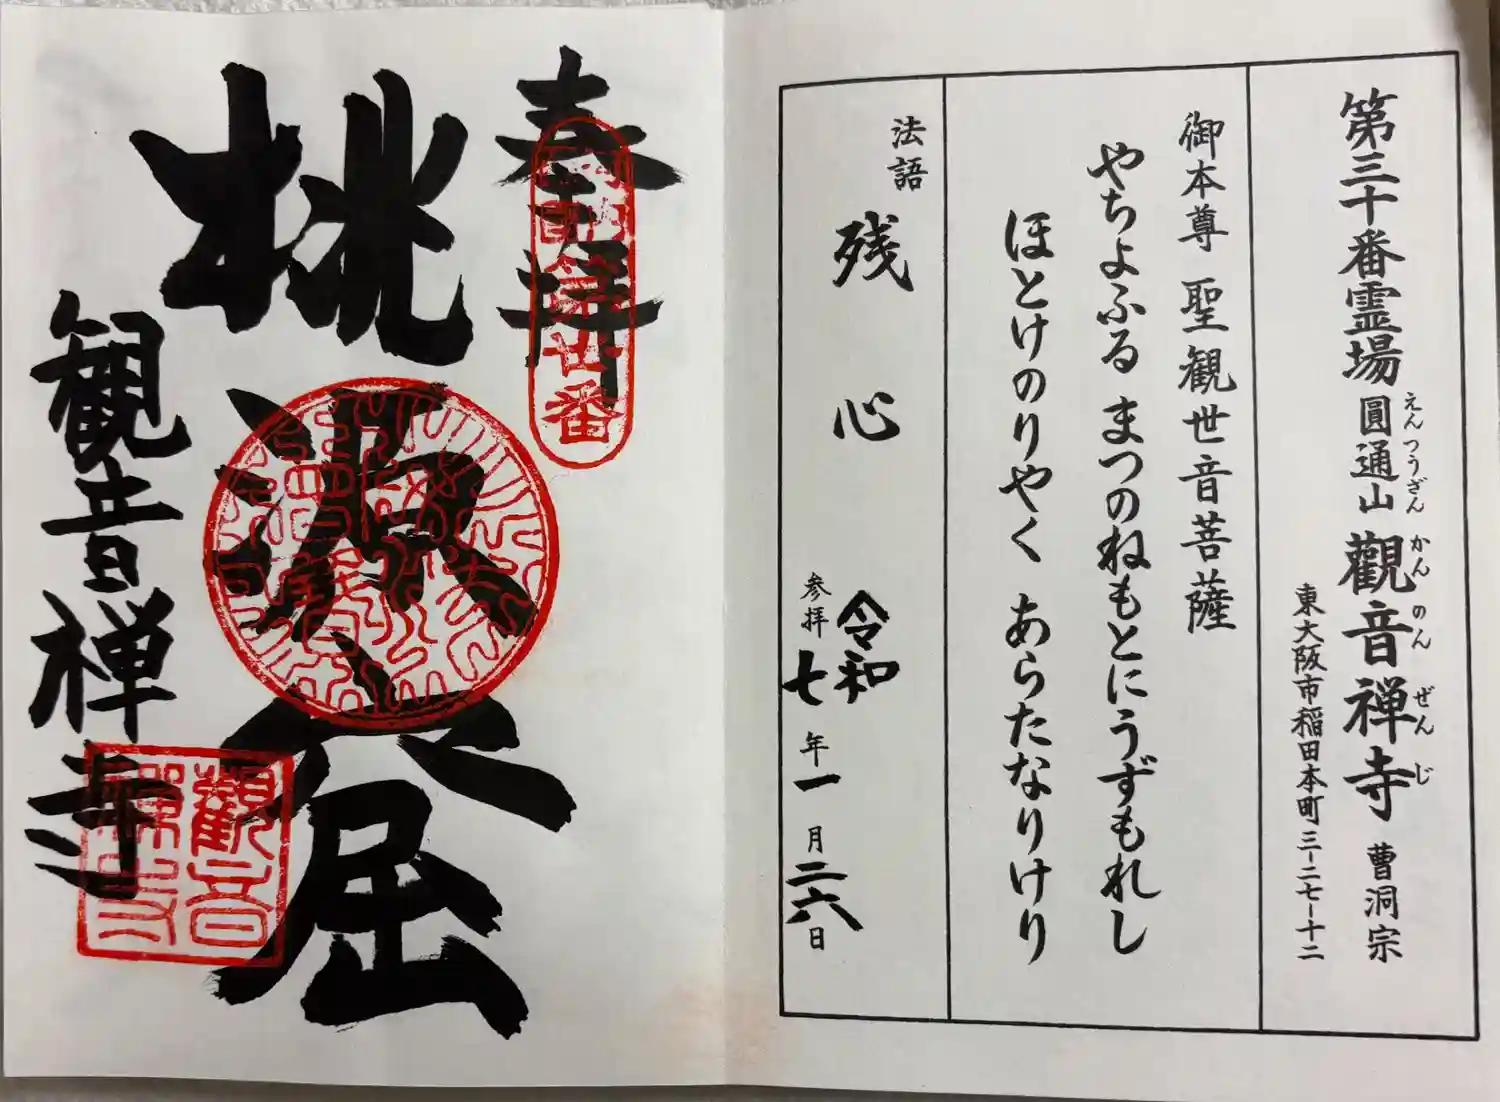 第三十番霊場 圓通山 觀音禅寺 曹洞宗
えんつうざん かんのんぜんじ
東大阪市稲田本町三-二七-十二
御本尊 聖観世音菩薩
やちよふる まつのねもとにうずもれし
ほとけのりやく あらたなりけり
法語 残心
令和
参拝 七年一月二六日
奉拝
第卅番
桃源窟
観音禅寺
觀音
禅寺